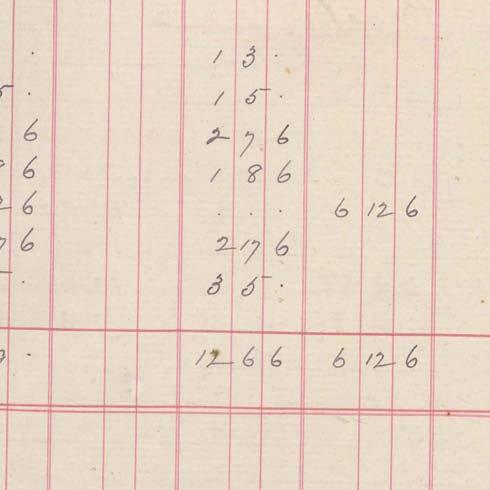 . 1 3 .
5 . 1 5 .
6 2 7 6
6 1 8 6
2 6 . . . 6 12 6
7 6 2 17 6
. 3 5 .
. 12 6 6 6 12 6